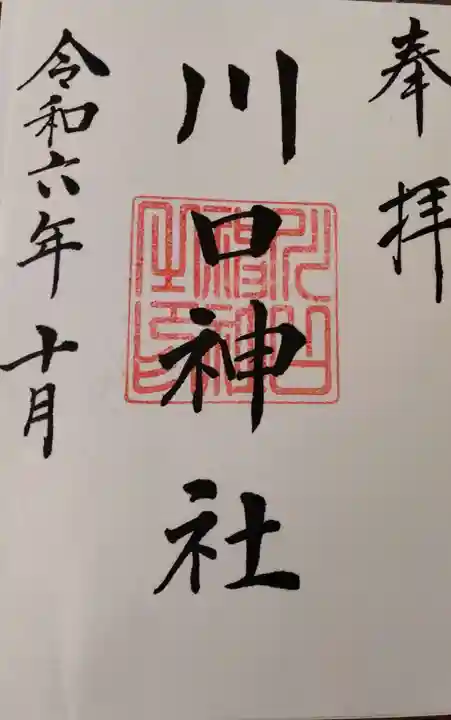 奉拝
川口神社
令和六年十月